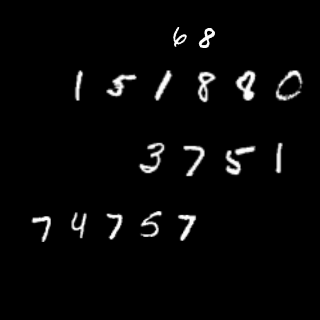 68
151880
3751
74757